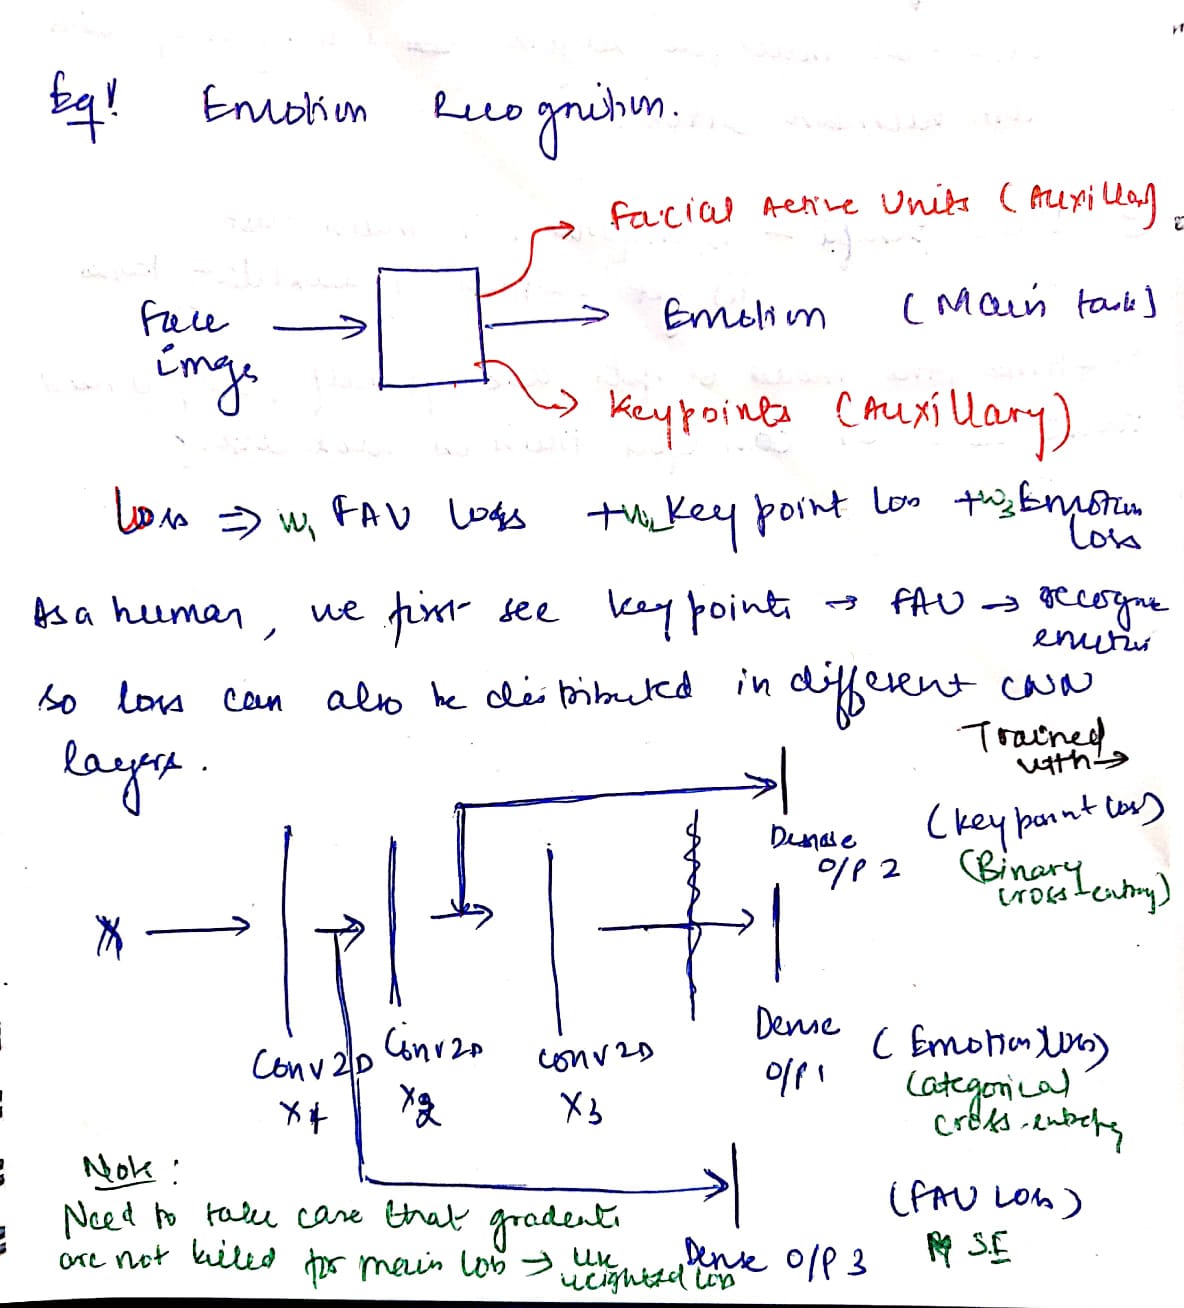 Eg! Emotion Recognition.
Facial Active Units (Auxillary)
Face image
Emotion (Main task)
Keypoints (Auxillary)
Loss ⇒ w₁ FAU loss +w₂ Key point loss +w₃ Emotion loss
As a human, we first see key points → FAU → recognize emotions
so loss can also be distributed in different CNN
layers.
Trained with →
Dense O/P 2 (key point loss)
(Binary cross-entropy)
X
Conv2D X1
Conv2D X2
Conv2D X3
Dense O/P 1 (Emotion loss)
Categorical cross-entropy
Note:
Need to take care that gradients
are not killed for main loss → use weighted loss
Dense O/P 3 (FAU Loss)
S.E